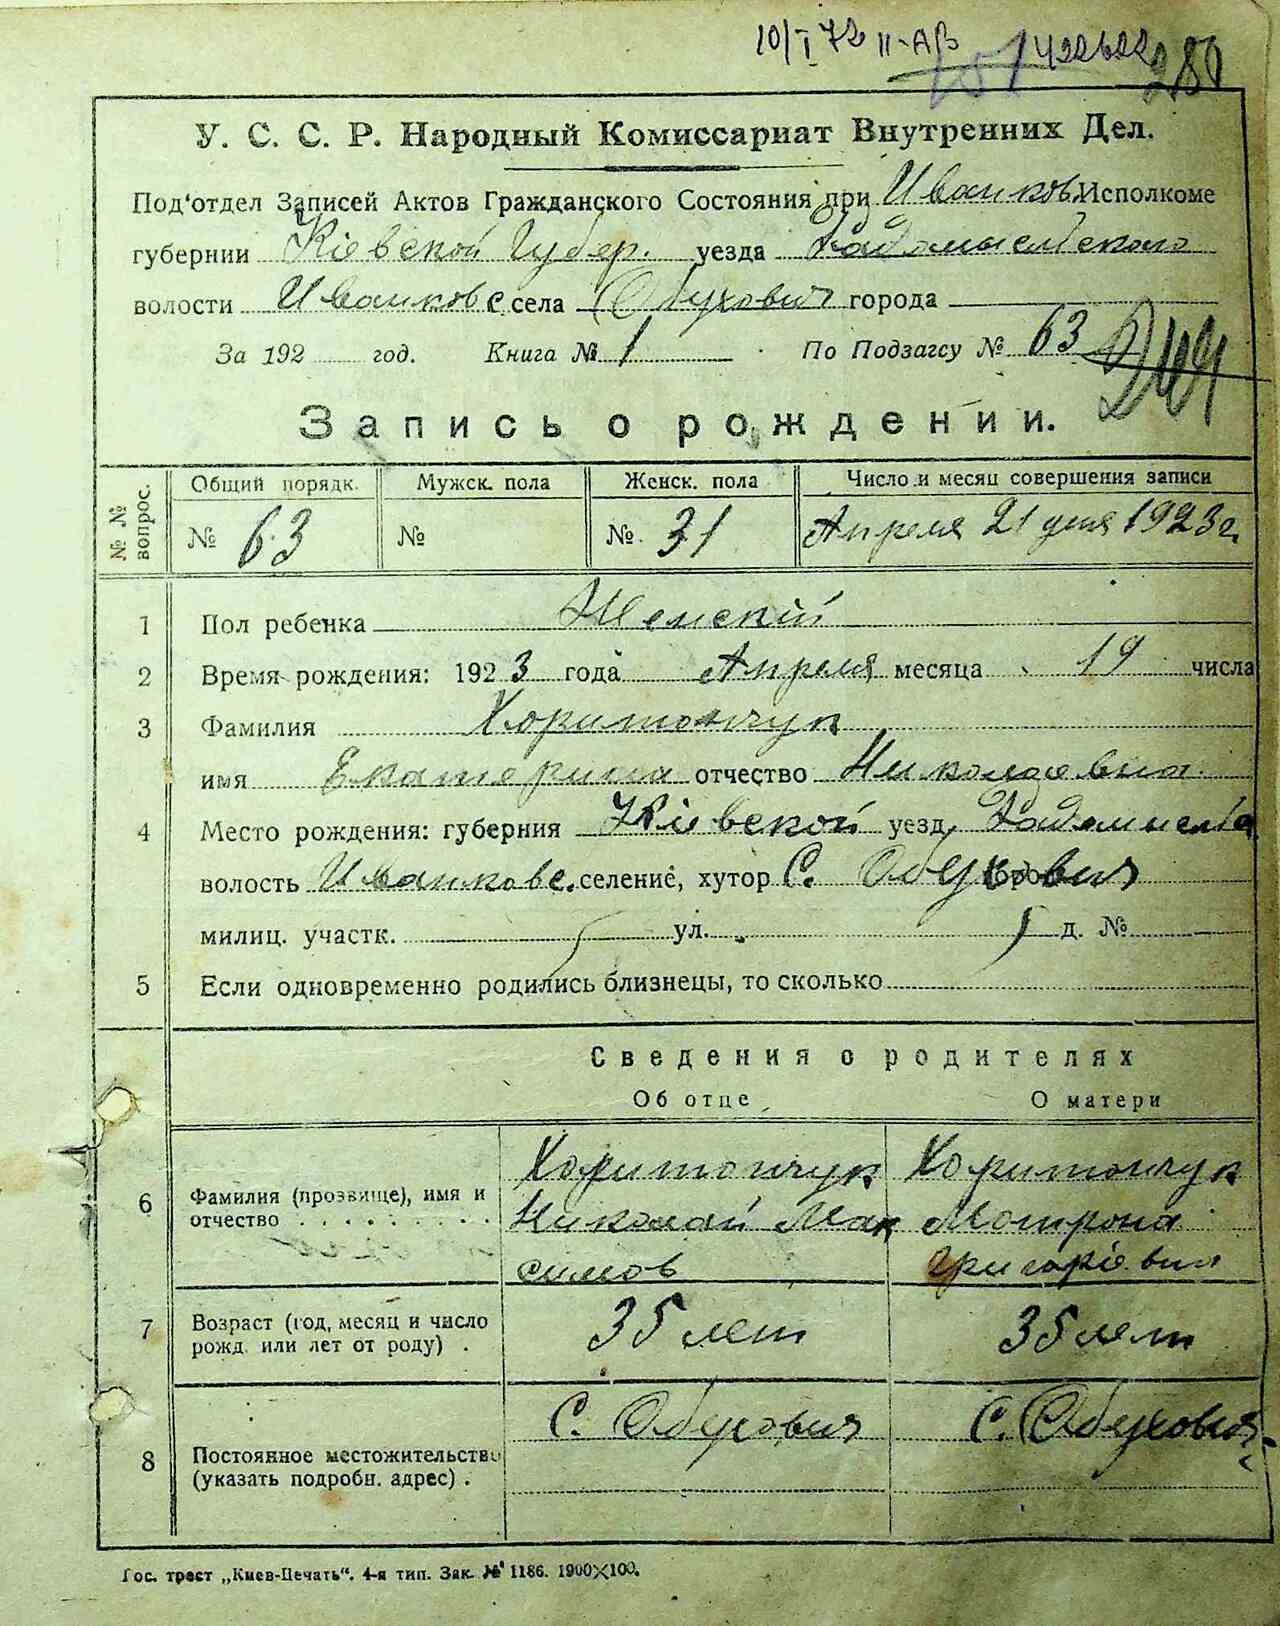 10/I 72 II-АВ 422622
У. С. С. Р. Народный Комиссариат Внутренних Дел.
Под'отдел Записей Актов Гражданского Состояния при Иванков. Исполкоме
губернии Кіевской Губер. уезда Радомысльского
волости Иванковс села Обуховичи города
За 192 год. Книга № 1 По Подзагсу № 63
Запись о рождении.
№ № вопрос. Общий порядк. Мужск. пола Женск. пола Число и месяц совершения записи
№ 63 № № 31 Апреля 21 дня 1923 г.
1 Пол ребенка Женскій
2 Время рождения: 1923 года Апреля месяца 19 числа
3 Фамилия Харитончук
имя Екатерина отчество Николаевна
4 Место рождения: губерния Кіевской уезд Радомысль
волость Иванковс. селение, хутор С. Обуховичи
милиц. участк. ул. д. №
5 Если одновременно родились близнецы, то сколько
Сведения о родителях
Об отце О матери
Харитончук Харитончук
6 Фамилия (прозвище), имя и отчество Николай Мак Мотрона
симов Григоріевна
7 Возраст (год, месяц и число рожд. или лет от роду) . 35 лет 35 лет
С. Обуховичи С. Обуховичи
8 Постоянное местожительство
(указать подробн. адрес) .
Гос. трест „Киев-Печать“. 4-я тип. Зак. № 1186. 1900×100.